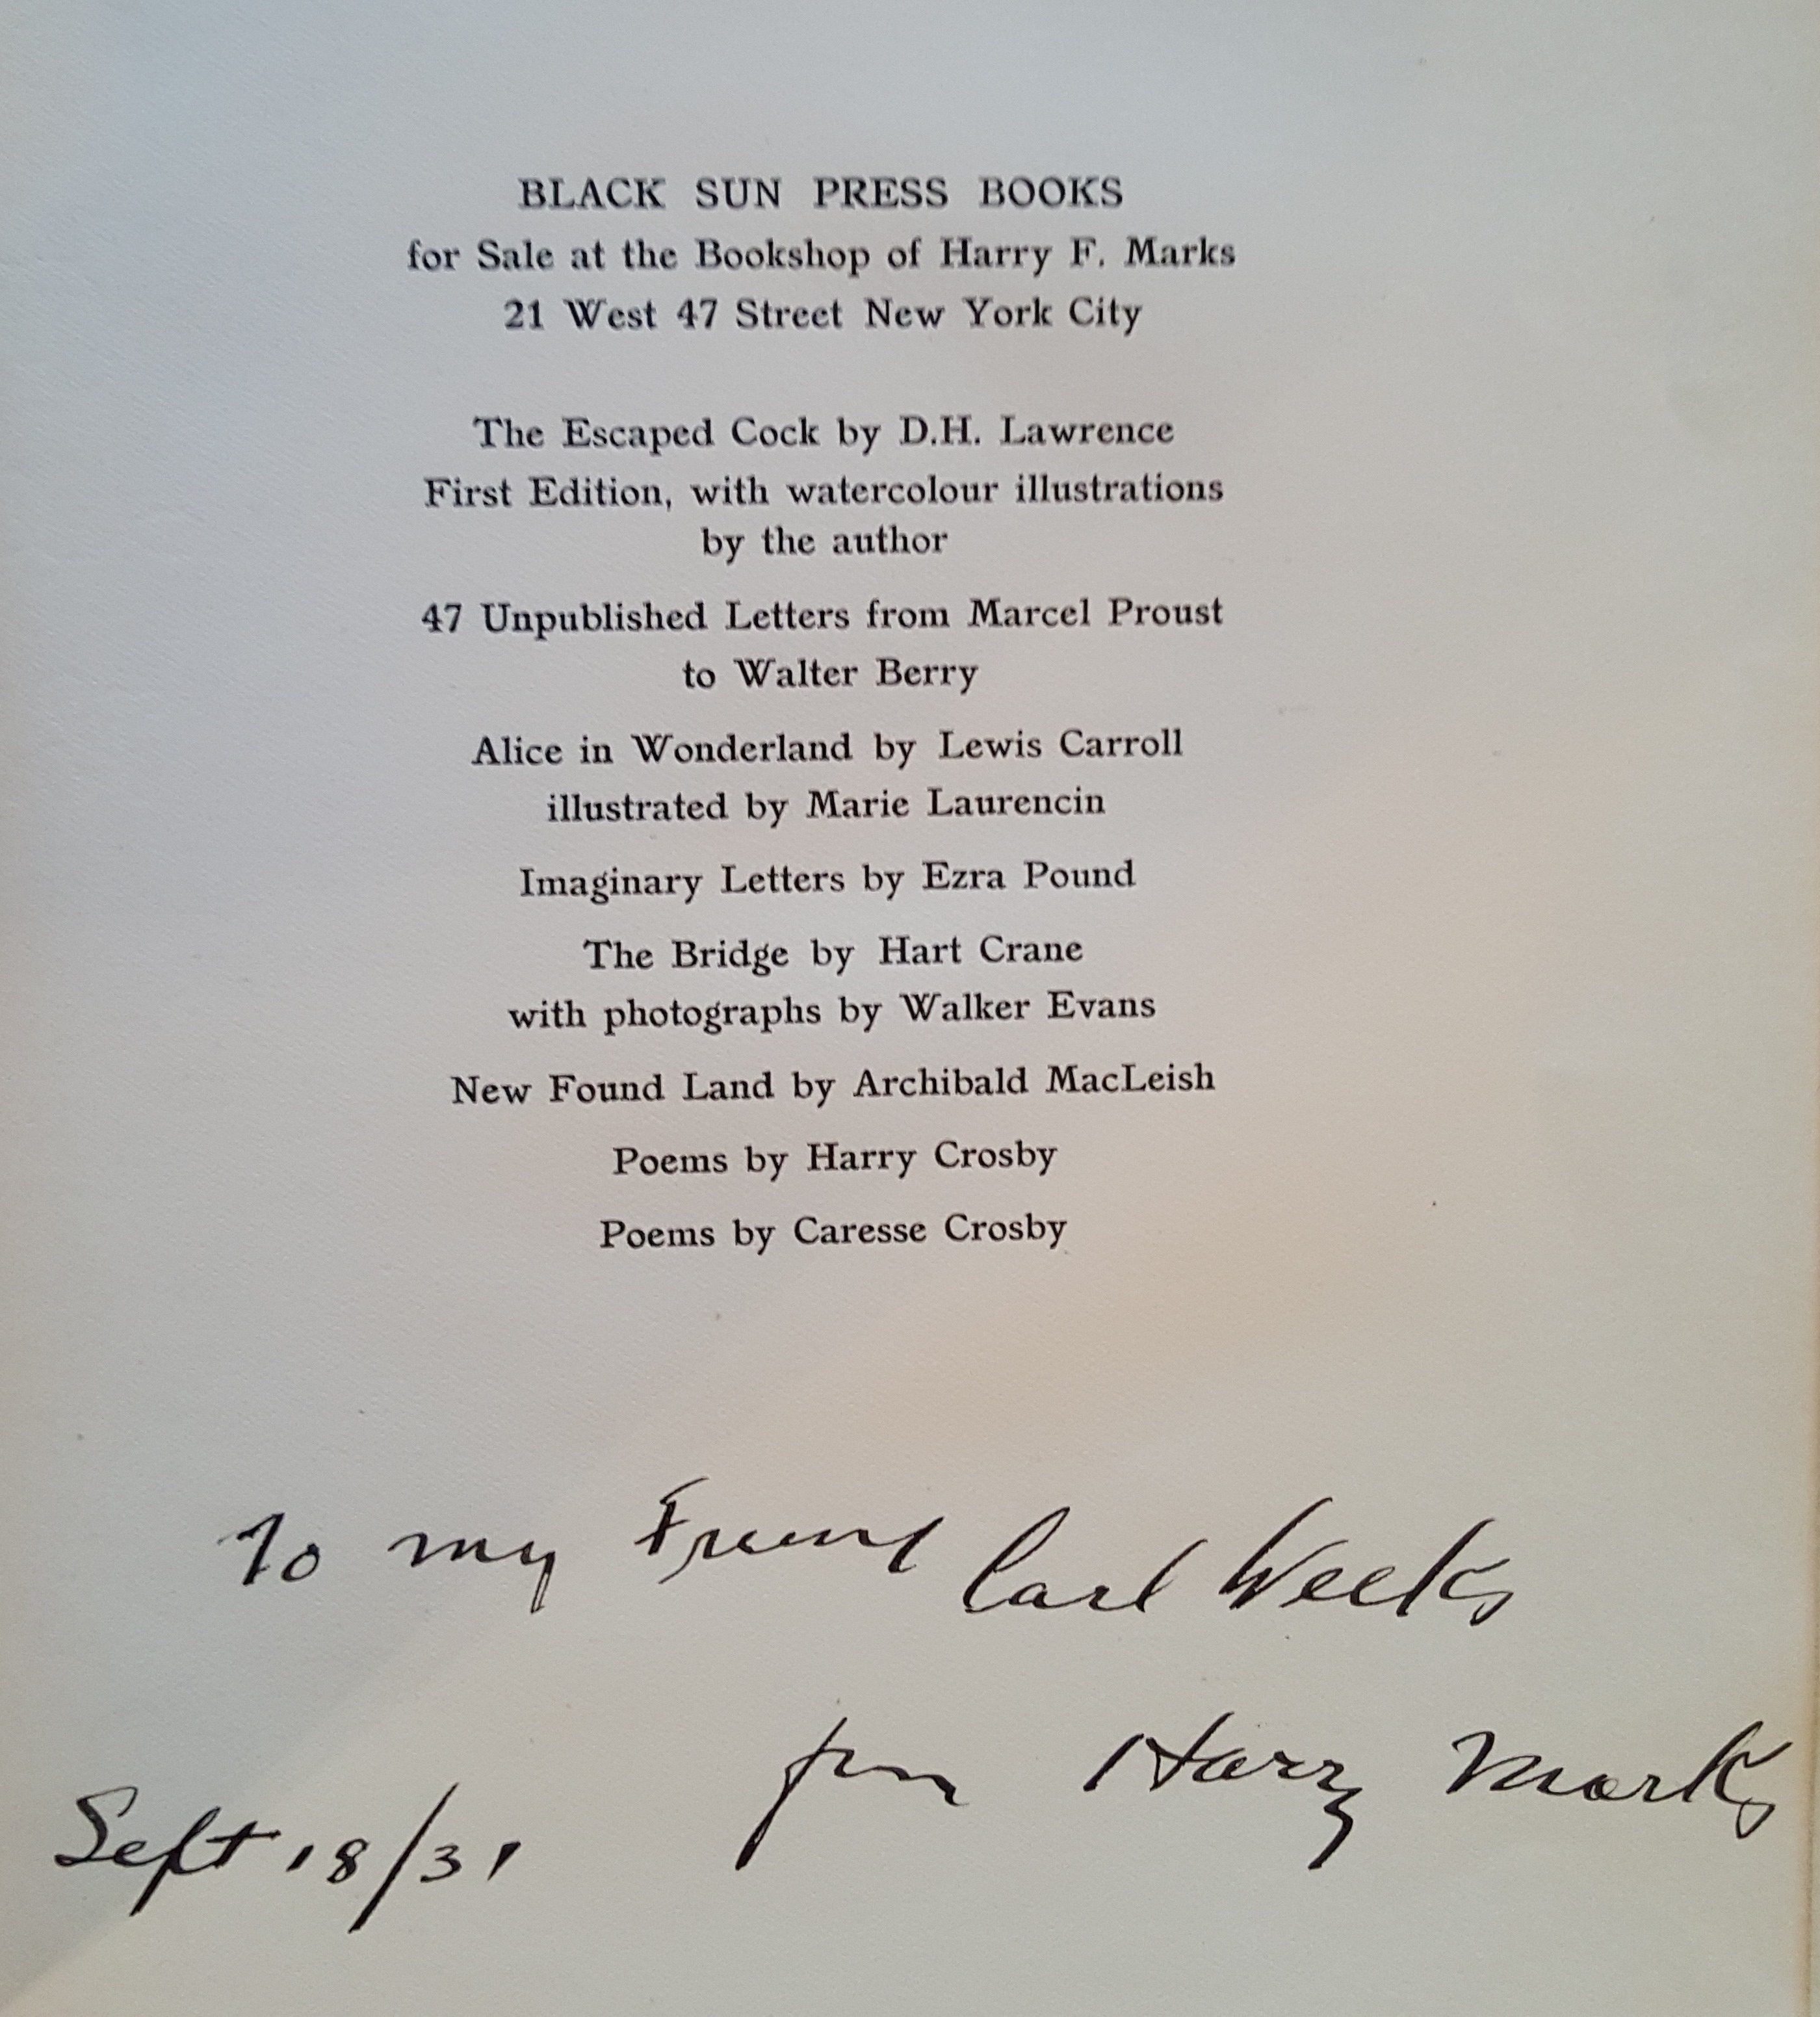 BLACK SUN PRESS BOOKS
for Sale at the Bookshop of Harry F. Marks
21 West 47 Street New York City
The Escaped Cock by D.H. Lawrence
First Edition, with watercolour illustrations
by the author
47 Unpublished Letters from Marcel Proust
to Walter Berry
Alice in Wonderland by Lewis Carroll
illustrated by Marie Laurencin
Imaginary Letters by Ezra Pound
The Bridge by Hart Crane
with photographs by Walker Evans
New Found Land by Archibald MacLeish
Poems by Harry Crosby
Poems by Caresse Crosby
To my Friend Carl Weeks
from Harry Marks
Sept 18/31